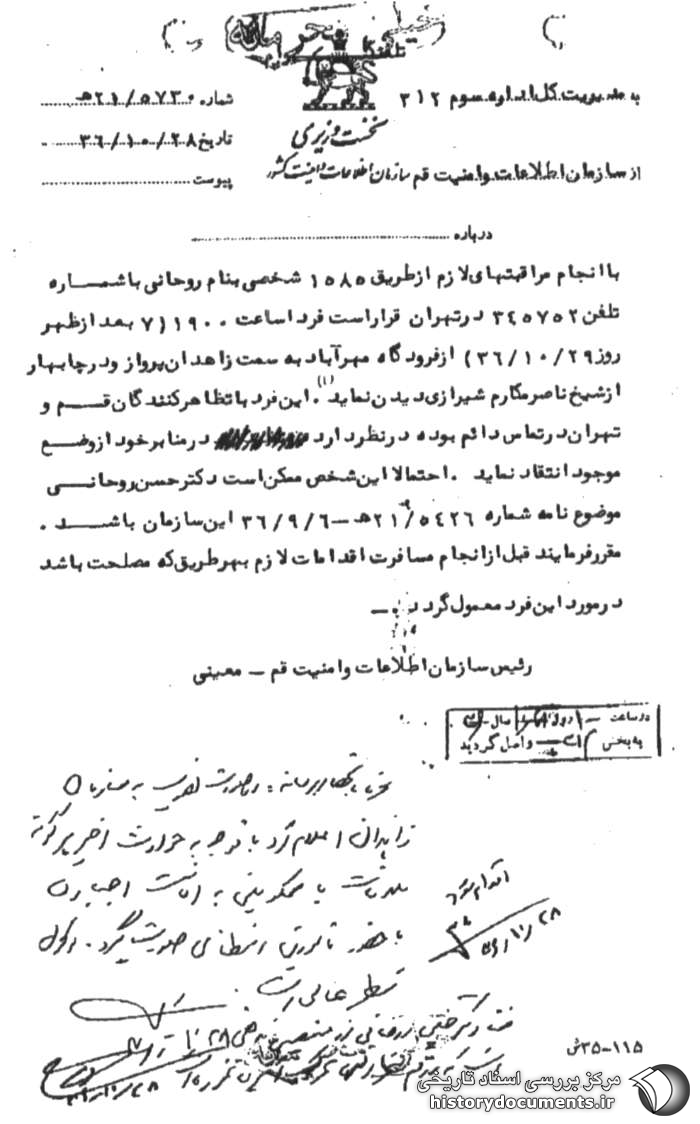 خیلی محرمانه
به مدیریت کل اداره سوم ۳۱۲
شماره ۲۱/۵۷۳۰هـ
نخست وزیری
تاریخ ۳۶/۱۰/۲۸
از سازمان اطلاعات و امنیت قم سازمان اطلاعات و امنیت کشور
پیوست
درباره
با انجام مراقبتهای لازم از طریق ۱۵۸۵ شخصی بنام روحانی با شماره
تلفن ۳۴۵۷۵۲ در تهران قرار است فردا ساعت ۱۹۰۰ (۷ بعد از ظهر
روز ۳۶/۱۰/۲۹) از فرودگاه مهرآباد به سمت زاهدان پرواز و در چابهار
از شیخ ناصر مکارم شیرازی دیدن نماید(۱). این فرد با تظاهرکنندگان قم و
تهران در تماس دائم بوده در نظر دارد در منابر خود از وضع
موجود انتقاد نماید . احتمالا این شخص ممکن است دکتر حسن روحانی
موضوع نامه شماره ۲۱/۵۴۲۶هـ – ۳۶/۹/۶ این سازمان باشد .
مقرر فرمایند قبل از انجام مسافرت اقدامات لازم بهر طریق که مصلحت باشد
در مورد این فرد معمول گردد . –
رئیس سازمان اطلاعات و امنیت قم – معینی
در ساعت روز سال
به بخش واصل گردید
زاهدان اعلام گردد با توجه به حوادث اخیر هرگونه
ملاقات با محکومینی به اقامت اجباری
با حضور مامورین انتظامی صورت گیرد.
اقدام شود
۲۸/۱۰
۳۵–۱۱۵ش
مرکز بررسی اسناد تاریخی
historydocuments.ir